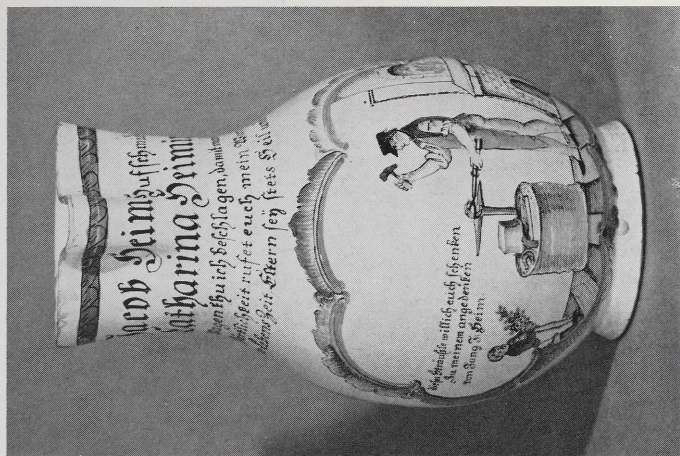 Jacob Heim Hufschmi
Catharina Heimin
thu ich beschlagen, damit
rufet euch mein
Zeit Eltern seÿ stets Heil
diese sträußle will ich euch schencken
Zu meinem angedencken
von Jung J: Heim.